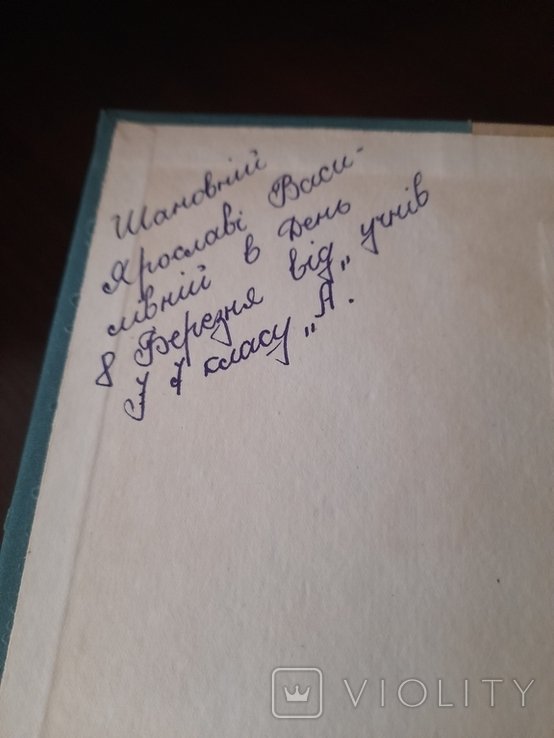 Шановній
Ярославі Васи-
лівній в День
8 Березня від учнів
7 класу „А".
VIOLITY